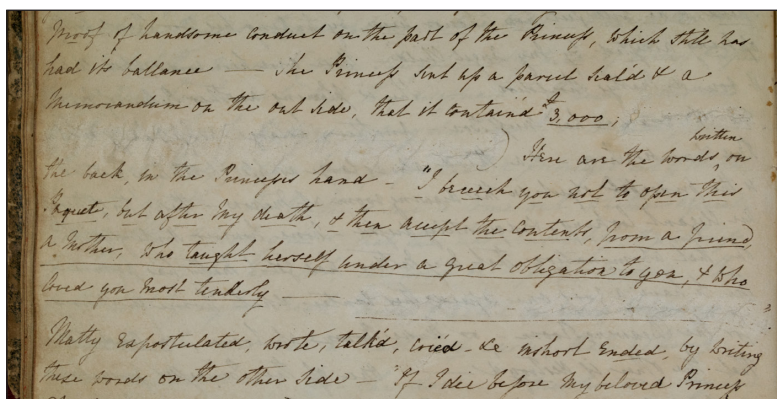 Proof of handsome conduct on the part of the Princess, which still has
had its ballance — The Princess sent up a parcel seal'd & a
Memorandum on the out side, that it contain'd £3,000;
Here are the words, written on
the back, in the Princesses hand - "I beseech you not to open this
Paquet, but after my death, & then accept the Contents, from a friend,
a Mother, who taught herself under a great obligation to you, & who
loved you most tenderly —"
Matty expostulated, wrote, talk'd, cried - &c inshort Ended, by writing
these words on the other side - "If I die before My beloved Princess